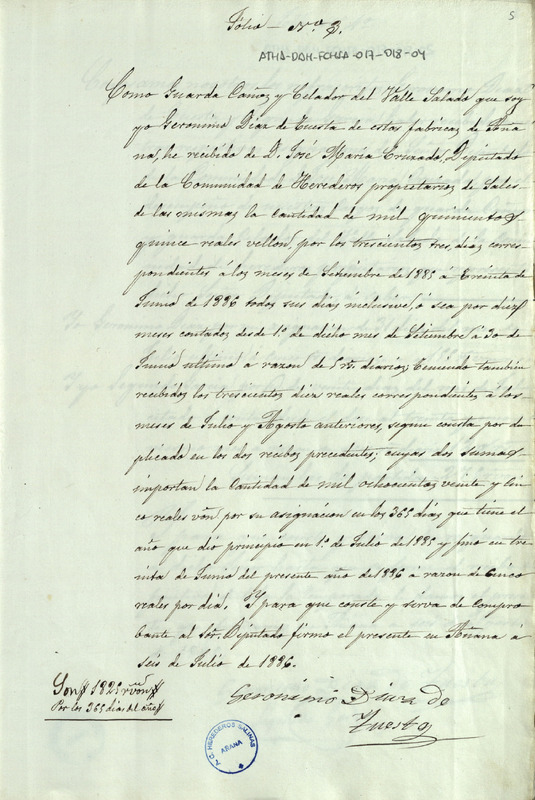 5
Fólio - Nº 3.
ATHA-DAH-FCHSA-017-018-04
Como Guarda Cañaz y Celador del Valle Salado que soy
yo Geronimo Diaz de Tuesta de estas fabricas de Aña
na, he recibido de D. José María Cruzado, Diputado
de la Comunidad de Herederos propietarios de Sales
de las mismas la cantidad de mil quinientos
quince reales vellon, por los trescientos tres, dias corres
pondientes á los meses de Setiembre de 1885 á treinta de
Junio de 1886 todos sus dias inclusive, ó sea por diez
meses contados desde 1.º de dicho mes de Setiembre á 30 de
Junio ultimo á razon de 5 rs. diarios; teniendo tambien
recibidos los trescientos diez reales correspondientes á los
meses de Julio y Agosto anteriores, segun consta por du
plicado en los dos recibos precedentes; cuyas dos sumas
importan la cantidad de mil ochocientos veinte y cin
co reales von por su asignacion en los 365 dias que tiene el
año que dió principio en 1.º de Julio de 1885 y finó en tre
inta de Junio del presente año de 1886 á razon de cinco
reales por dia. Y para que conste y sirva de compro
bante al Sor. Diputado firmo el presente en Añana á
seis de Julio de 1886.
Son 1825 rs von
Por los 365 dias del año
Geronimo Diaz de
Tuesta
HEREDEROS SALINAS
AÑANA